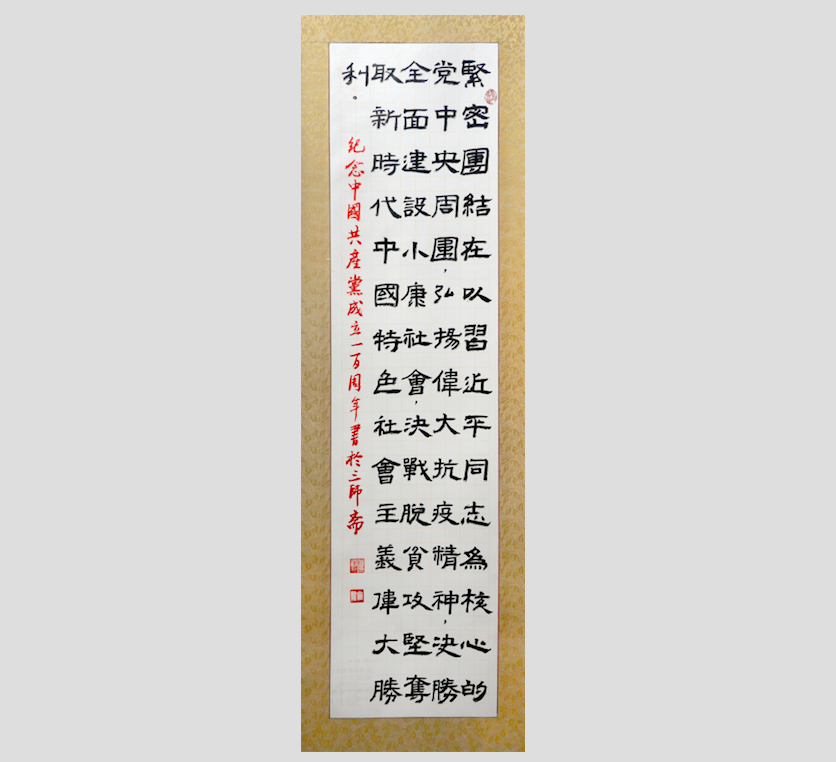 緊密團結在以習近平同志為核心的
党中央周圍，弘揚偉大抗疫精神，決勝
全面建設小康社會，決戰脫貧攻堅奪
取新時代中國特色社會主義偉大勝
利。
紀念中國共產黨成立一百周年書於三師斋